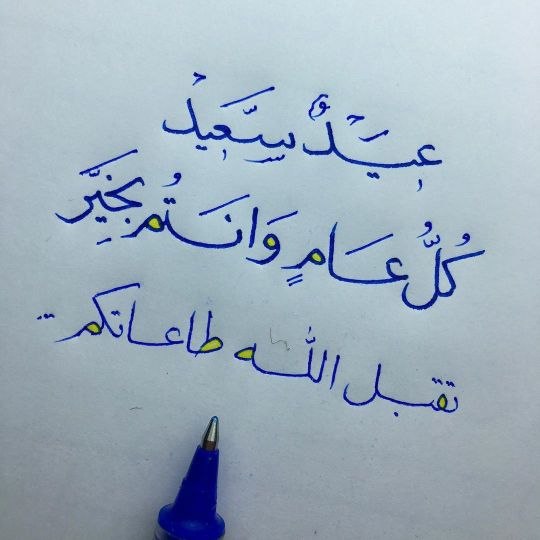 عِيَدٌ سَعِيدْ
كُلُّ عَامٍ وَانَتُم بِخَيَّر
تقبل الله طاعاتكم ..